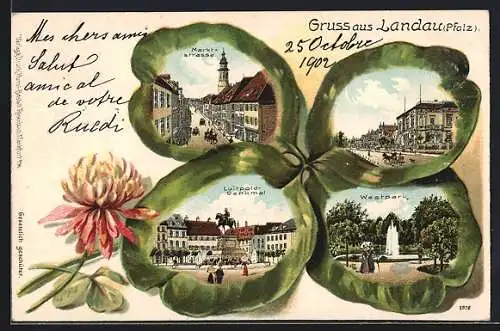 Gruss aus Landau (Pfalz).
25 Octobre
1902
Mes chers amis
Salut
amical
de votre
Ruedi
Markt-
strasse.
Luitpold-
Denkmal
Westpark.
Gesetzlich geschützt.